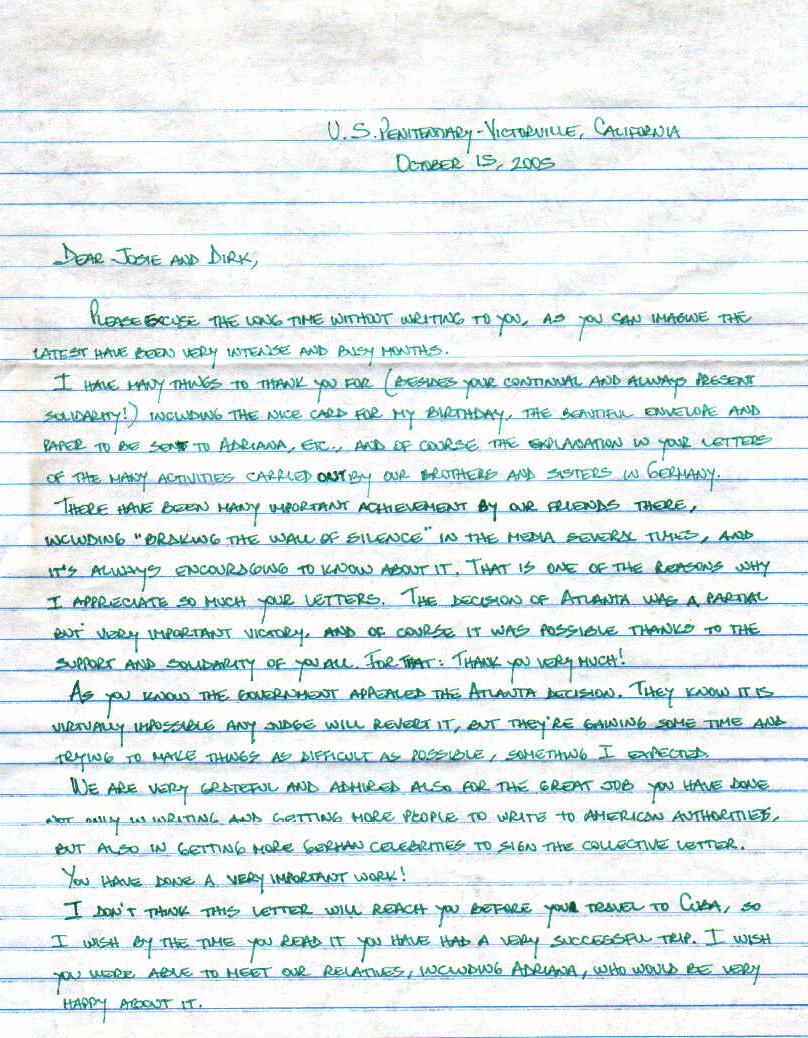 U.S. PENITENTIARY-VICTORVILLE, CALIFORNIA
OCTOBER 15, 2005
DEAR JOSIE AND DIRK,
PLEASE EXCUSE THE LONG TIME WITHOUT WRITING TO YOU, AS YOU CAN IMAGINE THE
LATEST HAVE BEEN VERY INTENSE AND BUSY MONTHS.
I HAVE MANY THINGS TO THANK YOU FOR (BESIDES YOUR CONTINUAL AND ALWAYS PRESENT
SOLIDARITY!) INCLUDING THE NICE CARD FOR MY BIRTHDAY, THE BEAUTIFUL ENVELOPE AND
PAPER TO BE SENT TO ADRIANA, ETC., AND OF COURSE THE EXPLANATION IN YOUR LETTERS
OF THE MANY ACTIVITIES CARRIED OUT BY OUR BROTHERS AND SISTERS IN GERMANY.
THERE HAVE BEEN MANY IMPORTANT ACHIEVEMENT BY OUR FRIENDS THERE,
INCLUDING "BRAKING THE WALL OF SILENCE" IN THE MEDIA SEVERAL TIMES, AND
IT'S ALWAYS ENCOURAGING TO KNOW ABOUT IT. THAT IS ONE OF THE REASONS WHY
I APPRECIATE SO MUCH YOUR LETTERS. THE DECISION OF ATLANTA WAS A PARTIAL
BUT VERY IMPORTANT VICTORY, AND OF COURSE IT WAS POSSIBLE THANKS TO THE
SUPPORT AND SOLIDARITY OF YOU ALL. FOR THAT: THANK YOU VERY MUCH!
AS YOU KNOW THE GOVERNMENT APPEALED THE ATLANTA DECISION. THEY KNOW IT IS
VIRTUALLY IMPOSSIBLE ANY JUDGE WILL REVERT IT, BUT THEY'RE GAINING SOME TIME AND
TRYING TO MAKE THINGS AS DIFFICULT AS POSSIBLE, SOMETHING I EXPECTED.
WE ARE VERY GRATEFUL AND ADMIRED ALSO FOR THE GREAT JOB YOU HAVE DONE
NOT ONLY IN WRITING AND GETTING MORE PEOPLE TO WRITE TO AMERICAN AUTHORITIES,
BUT ALSO IN GETTING MORE GERMAN CELEBRITIES TO SIGN THE COLLECTIVE LETTER.
YOU HAVE DONE A VERY IMPORTANT WORK!
I DON'T THINK THIS LETTER WILL REACH YOU BEFORE YOUR TRAVEL TO CUBA, SO
I WISH BY THE TIME YOU READ IT YOU HAVE HAD A VERY SUCCESSFUL TRIP. I WISH
YOU WERE ABLE TO MEET OUR RELATIVES, INCLUDING ADRIANA, WHO WOULD BE VERY
HAPPY ABOUT IT.